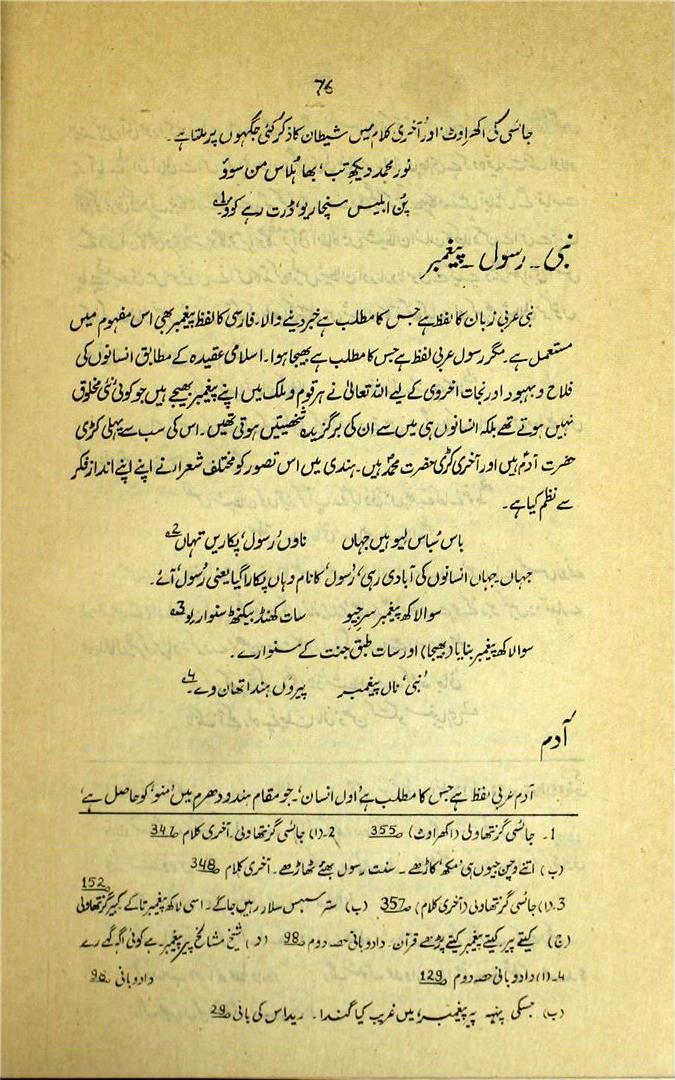 76
جائسی کی اکھراوٹ، اور آخری کلام میں شیطان کا ذکر کئی جگہوں پر ملتا ہے۔
نور محمد دیکھ تب، بھا ہلاس من سوؤ
پن ابلیس سنچاریو، ڈرت رہے کوؤ۔1؎
نبی۔ رسول۔ پیغمبر
نبی عربی زبان کا لفظ ہے جس کا مطلب ہے خبر دینے والا۔ فارسی کا لفظ پیغمبر بھی اس مفہوم میں
مستعمل ہے۔ مگر رسول عربی لفظ ہے جس کا مطلب ہے بھیجا ہوا۔ اسلامی عقیدہ کے مطابق انسانوں کی
فلاح و بہبود اور نجات اخروی کے لیے اللہ تعالیٰ نے ہر قوم و ملک میں اپنے پیغمبر بھیجے ہیں جو کوئی نئی مخلوق
نہیں ہوتے تھے بلکہ انسانوں ہی میں سے ان کی برگزیدہ شخصیتیں ہوتی تھیں۔ اس کی سب سے پہلی کڑی
حضرت آدمؑ ہیں اور آخری کڑی حضرت محمدؐ ہیں۔ ہندی میں اس تصور کو مختلف شعراء نے اپنے اپنے انداز فکر
سے نظم کیا ہے۔
باس سُباس لیو ہیں جہاں ناوں ’رسول‘ پکاریں تہاں2؎
جہاں۔ جہاں انسانوں کی آبادی رہی، ’رسول‘ کا نام وہاں پکارا گیا یعنی رسول‘ آئے۔
سوالاکھ پیغمبر سرجیو سات کھنڈ بیکنٹھ سنواریو3؎
سوالاکھ پیغمبر بنایا (بھیجا) اور سات طبق جنت کے سنوارے۔
’نبی‘ ناں پیغمبر پیروں ہندا تھان وے۔4؎
آدم
آدم عربی لفظ ہے جس کا مطلب ہے ’اول انسان‘۔ جو مقام ہندو دھرم میں ’منو‘ کو حاصل ہے،
1۔ جائسی گرنتھاولی (اکھراوٹ) ص355 2۔(ا) جائسی گرنتھاولی۔ آخری کلام ص347
(ب) اتنے وچن جیوں ہی ’مکھ‘ کاڑھے۔ سنت رسول بھئے ٹھاڑھے۔ آخری کلام ص348
3۔(ا) جائسی گرنتھاولی (آخری کلام) ص357 (ب) ستر سہس سلار رہیں جاکے۔ اسی لاکھ پیغمبر تاکے کبیر گرنتھاولی ص152
(ج) کیتے پیر، کیتے پیغمبر کیتے پڑھے قرآن۔ دادو بانی حصہ دوم ص98 (د) شیخ مشائخ پیر پیغمبر۔ ہے کوئی اگہ گہے رے
4۔(ا) دادو بانی حصہ دوم ص129 دادو بانی ص98
(ب) جسکی پنہہ پیر پیغمبر، میں غریب کیا گندا۔ ریداس کی بانی ص29